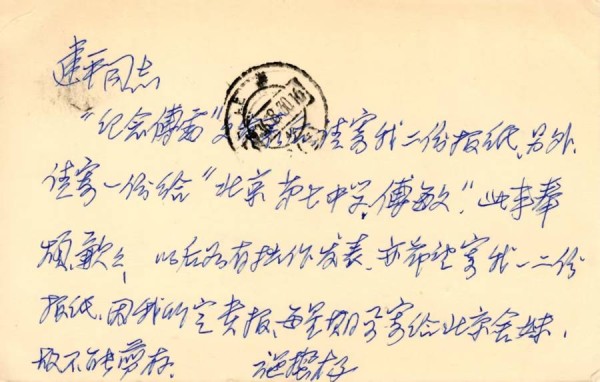 建平同志
"纪念傅雷"文发表后请寄我二份报纸,另外,
请寄一份给"北京第七中学,傅敏"。此事奉
烦,歉歉!以后如有拙作发表,亦希望寄我一二份
报纸,因我所定贵报,每星期寄给北京舍妹,
故不能剪存。 施蛰存
上海